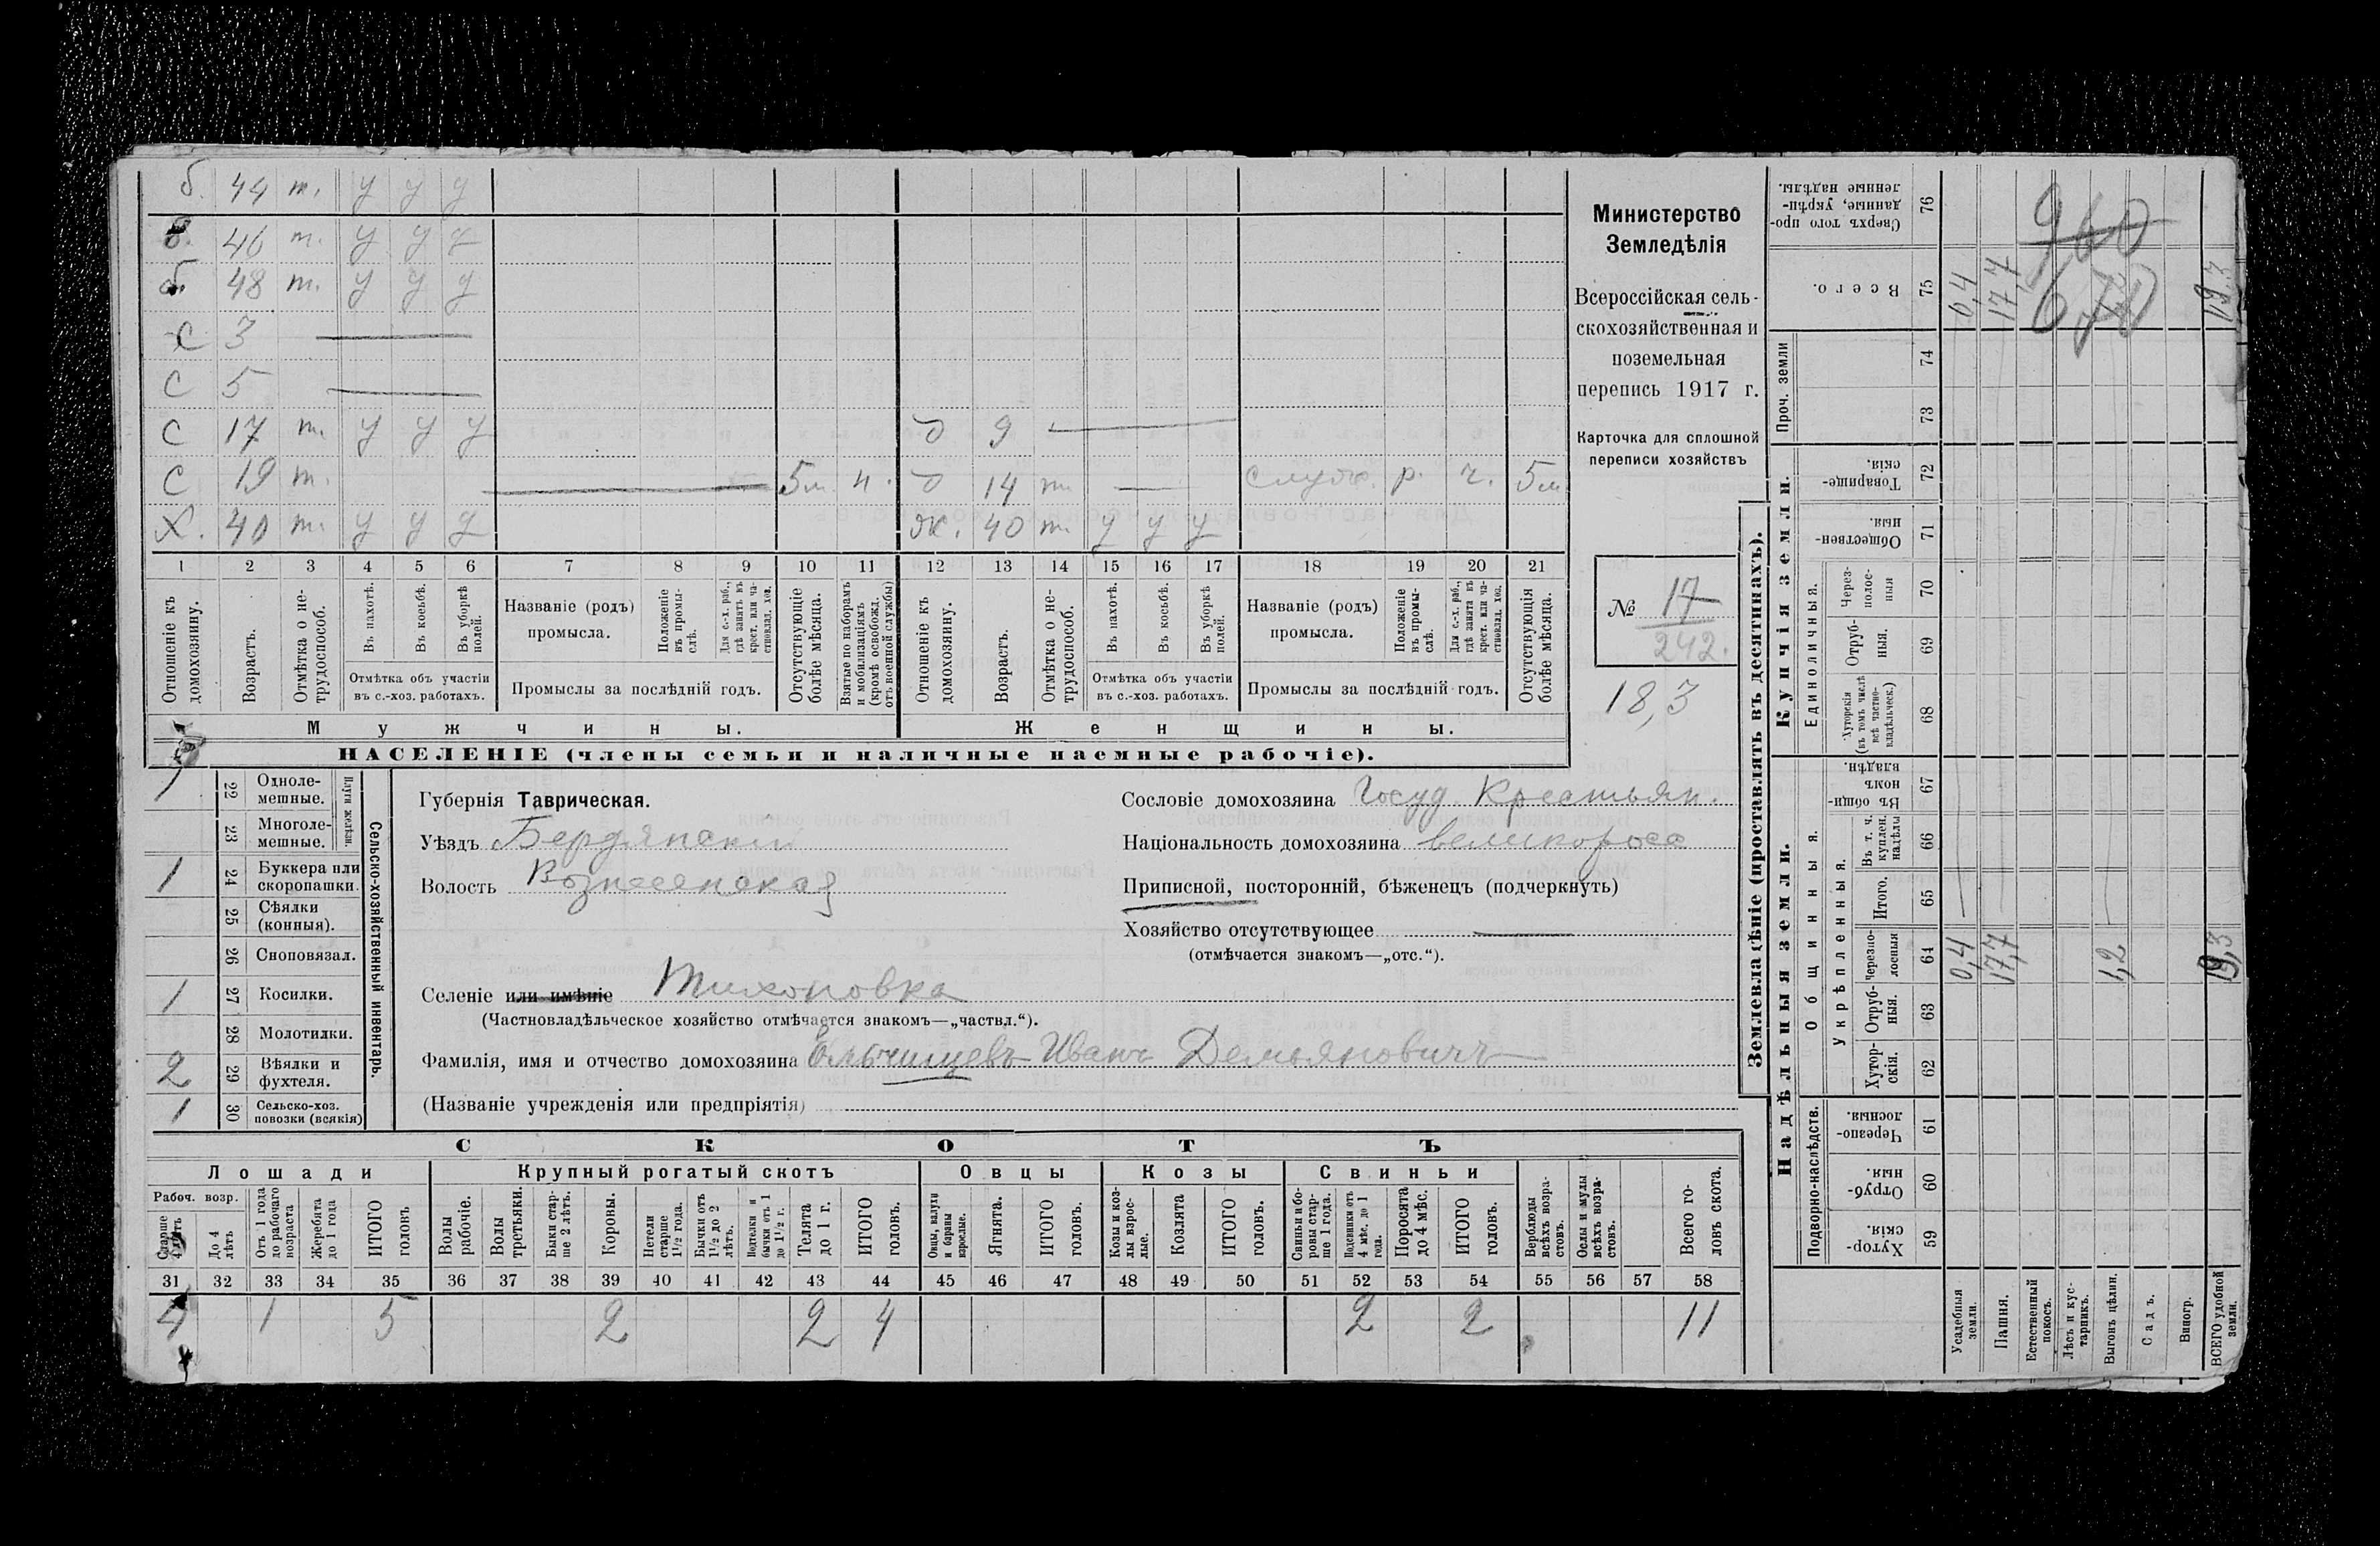 б. 44 т. у у у
б. 46 т. у у у
б. 48 т. у у у
с 3
с 5
с 17 т. у у у д 9
с 19 т. 5м н. д 14 т. р. ч. 5м
Х. 40 т. у у у ж. 40 т. у у у
1 2 3 4 5 6 7 8 9 10 11 12 13 14 15 16 17 18 19 20 21
Отношеніе къ домохозяину.
Возрастъ.
Отмѣтка о нетрудоспособ.
Въ пахотѣ.
Въ косьбѣ.
Въ уборкѣ полей.
Отмѣтка объ участіи
въ с.-хоз. работахъ.
Названіе (родъ)
промысла.
Положеніе въ промыслѣ.
Для с.-х. раб., гдѣ занятъ въ крест. или частновлад. хоз.
Промыслы за послѣдній годъ.
Отсутствующіе болѣе мѣсяца.
Взятые по наборамъ и мобилизаціямъ (кромѣ освобожд. отъ военной службы)
Отношеніе къ домохозяину.
Возрастъ.
Отмѣтка о нетрудоспособ.
Въ пахотѣ.
Въ косьбѣ.
Въ уборкѣ полей.
Отмѣтка объ участіи
въ с.-хоз. работахъ.
Названіе (родъ)
промысла.
Положеніе въ промыслѣ.
Для с.-х. раб., гдѣ занята въ крест. или частновлад. хоз.
Промыслы за послѣдній годъ.
Отсутствующія болѣе мѣсяца.
Мужчины. Женщины.
НАСЕЛЕНІЕ (члены семьи и наличные наемные рабочіе).
Министерство
Земледѣлія
Всероссійская сель-
скохозяйственная и
поземельная
перепись 1917 г.
Карточка для сплошной
переписи хозяйствъ
№ 17
242.
18,3
1 22 Одноле-
мешные.
23 Многоле-
мешные.
Плуги желѣзн.
1 24 Буккера или
скоропашки.
25 Сѣялки
(конныя).
26 Сноповязал.
1 27 Косилки.
28 Молотилки.
2 29 Вѣялки и
фухтеля.
1 30 Сельско-хоз.
повозки (всякія)
Сельско-хозяйственный инвентарь.
Губернія Таврическая.
Уѣздъ Бердянскій
Волость Вознесенская
Селеніе или имѣніе Тихоновка
(Частновладѣльческое хозяйство отмѣчается знакомъ—„частвл.“).
Фамилія, имя и отчество домохозяина Ельчищевъ Иванъ Демьяновичъ
(Названіе учрежденія или предпріятія)
Сословіе домохозяина Госуд. Крестьян.
Національность домохозяина великоросс
Приписной, посторонній, бѣженецъ (подчеркнуть)
Хозяйство отсутствующее
(отмѣчается знакомъ—„отс.“).
СКОТЪ
Лошади Крупный рогатый скотъ Овцы Козы Свиньи
Рабоч. возр.
Старше 4 лѣтъ
До 4 лѣтъ
Отъ 1 года до рабочаго возраста
Жеребята до 1 года
ИТОГО головъ
Волы рабочіе.
Волы третьяки.
Быки старше 2 лѣтъ.
Коровы.
Нетели старше 1½ года.
Бычки отъ 1½ до 2 лѣтъ.
Подтелки и бычки отъ 1 до 1½ г.
Телята до 1 г.
ИТОГО головъ.
Овцы, валухи и бараны взрослые.
Ягнята.
ИТОГО головъ.
Козы и козлы взрослые.
Козлята
ИТОГО головъ.
Свиньи и боровы старше 1 года.
Подсвинки отъ 4 мѣс. до 1 года.
Поросята до 4 мѣс.
ИТОГО головъ.
Верблюды всѣхъ возрастовъ.
Ослы и мулы всѣхъ возрастовъ.
Всего головъ скота.
31 32 33 34 35 36 37 38 39 40 41 42 43 44 45 46 47 48 49 50 51 52 53 54 55 56 57 58
4 1 5 2 2 4 2 2 11
Землевладѣніе (проставлять въ десятинахъ).
Надѣльныя земли. Купчія земли. Проч. земли
Подворно-наслѣдств.
Общинныя.
Укрѣпленныя.
Единоличныя.
Хуторскія. 59
Отрубныя. 60
Черезполосныя. 61
Хуторскія. 62
Отрубныя. 63
Черезполосныя 64
Итого. 65
Въ т. ч. куплен. надѣлы 66
Въ общинномъ владѣн. 67
Хуторскія (въ томъ числѣ всѣ частновладѣльческ.) 68
Отрубныя. 69
Черезполосныя 70
Общественныя. 71
Товарищескія. 72
73
74
Всего. 75
Сверхъ того проданные, укрѣпленные надѣлы. 76
Усадебныя земли. 0,4 0,4
Пашня. 17,7 17,7
Естественный покосъ.
Лѣсъ и кустарникъ.
Выгонъ цѣлин. 1,2
Садъ.
Виногр.
ВСЕГО удобной земли. 19,3 19,3
960